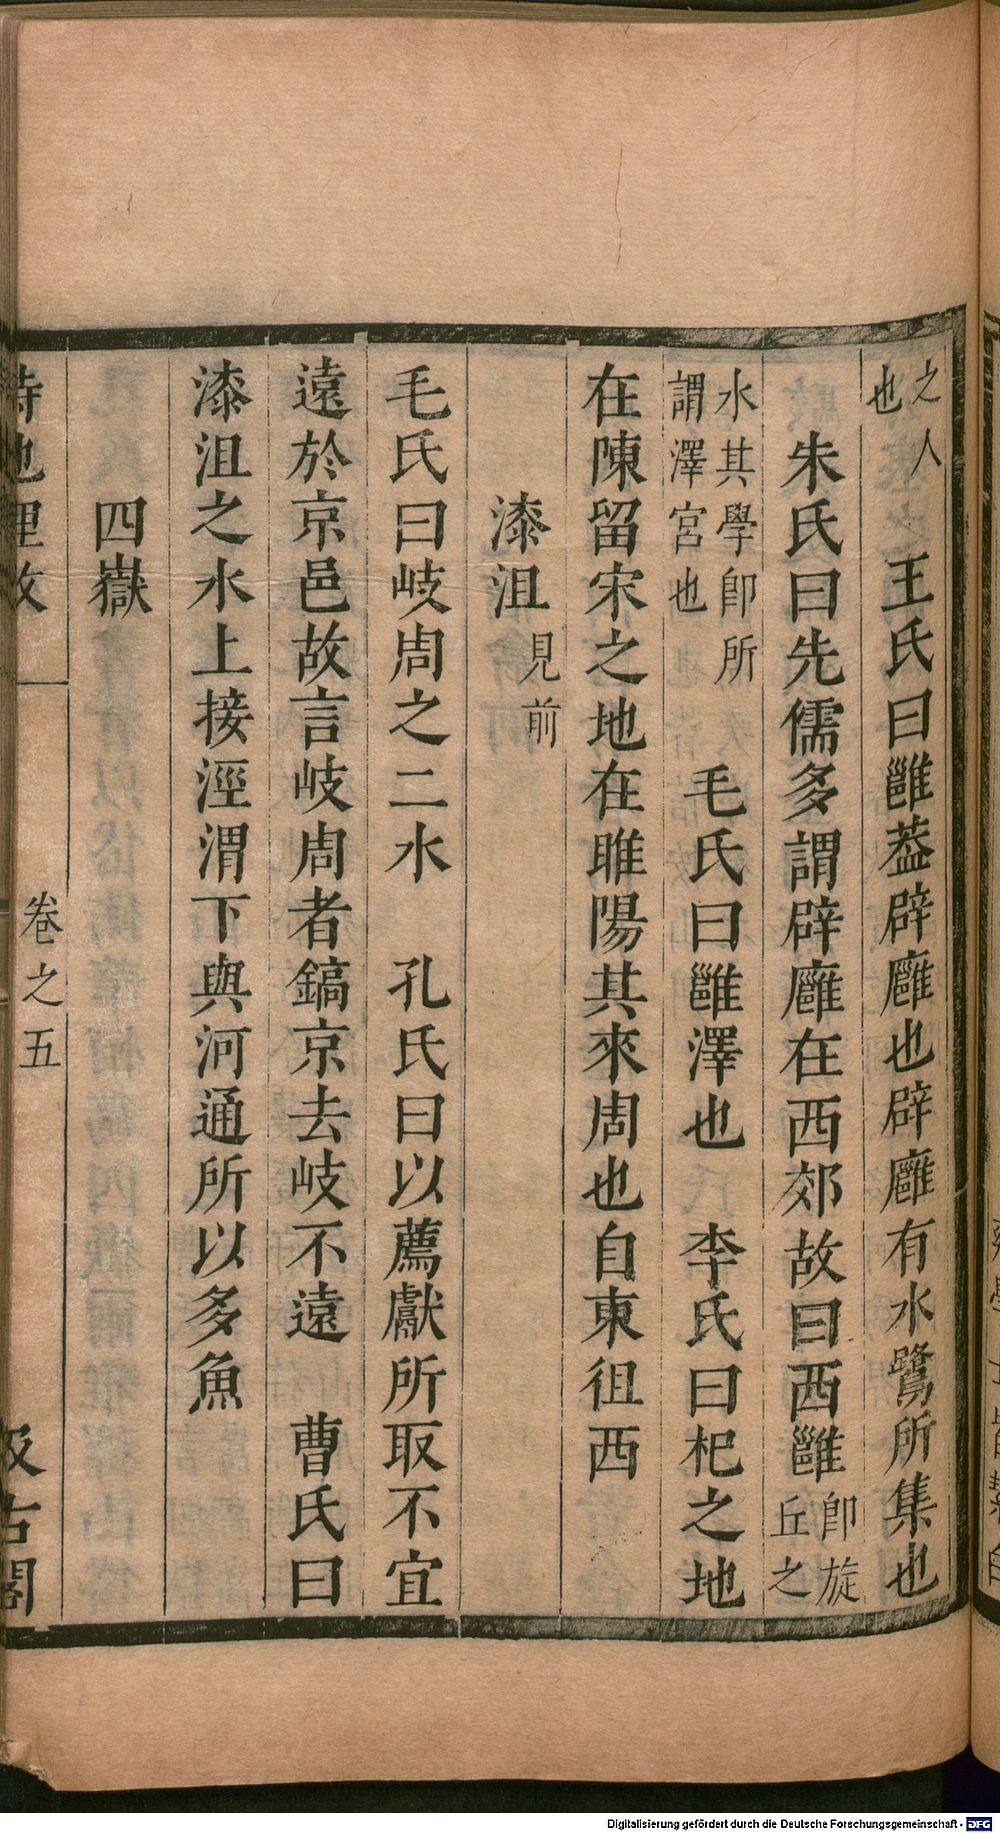 之人也　王氏曰雝葢辟廱也辟廱有水鷺所集也
朱氏曰先儒多謂辟廱在西郊故曰西雝卽旋丘之
水其學卽所謂澤宮也　毛氏曰雝澤也　李氏曰杞之地
在陳留宋之地在睢陽其來周也自東徂西
漆沮見前
毛氏曰岐周之二水　孔氏曰以薦獻所取不宜
遠於京邑故言岐周者鎬京去岐不遠　曹氏曰
漆沮之水上接涇渭下與河通所以多魚
四嶽
詩地理攷　卷之五　汲古閣
Digitalisierung gefördert durch die Deutsche Forschungsgemeinschaft - DFG